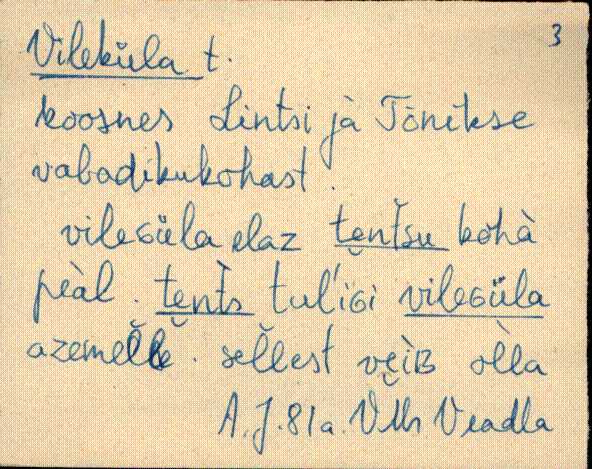 3
Vileküla t.
koosnes Lintsi jà Tõnikse
vabadikukohast.
vileɢüla elaz tȩntšu kohà
peàl. tȩntš tul'iɢi vileɢüla
azemel̆l̆e. sel̆l̆est vȩìʙ òlla
A. J. 81 a. Vlhr Veadla